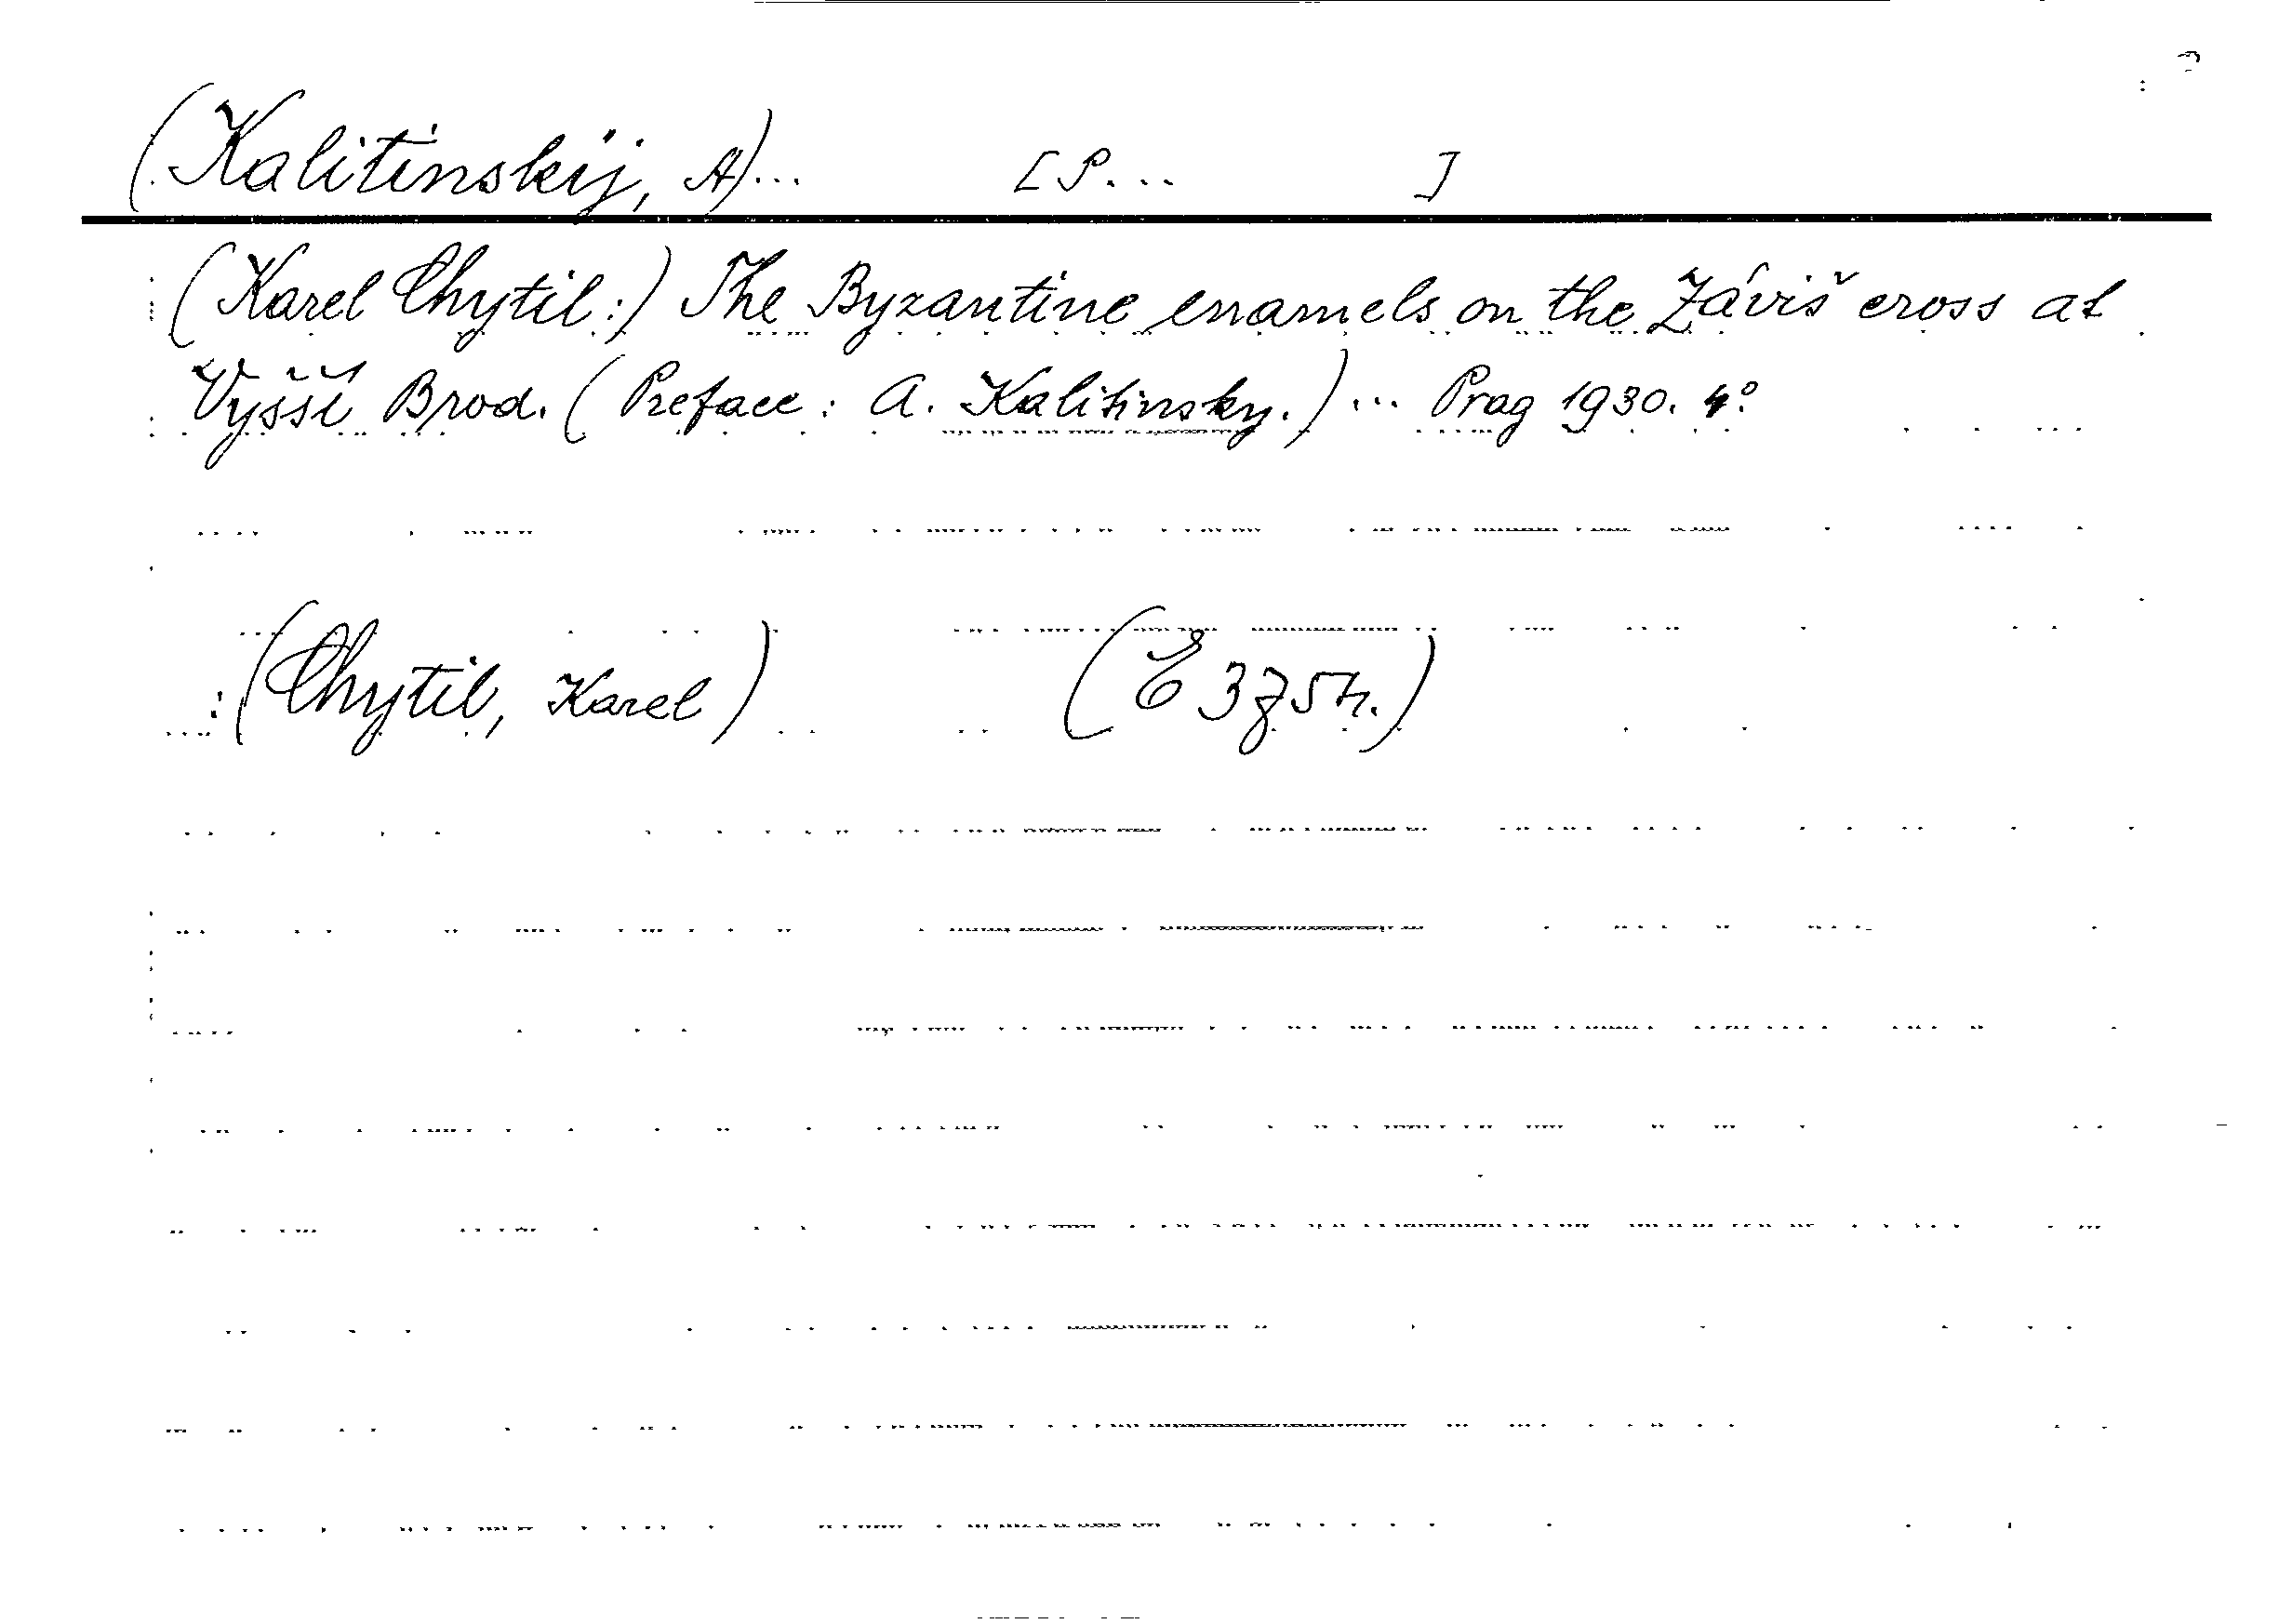 (Kalitinskij, A)... [P... ]
(Karel Chytil:) The Byzantine enamels on the Záviš cross at
Vyšší Brod. (Preface: A. Kalitinsky.) ... Prag 1930. 4°
:(Chytil, Karel)